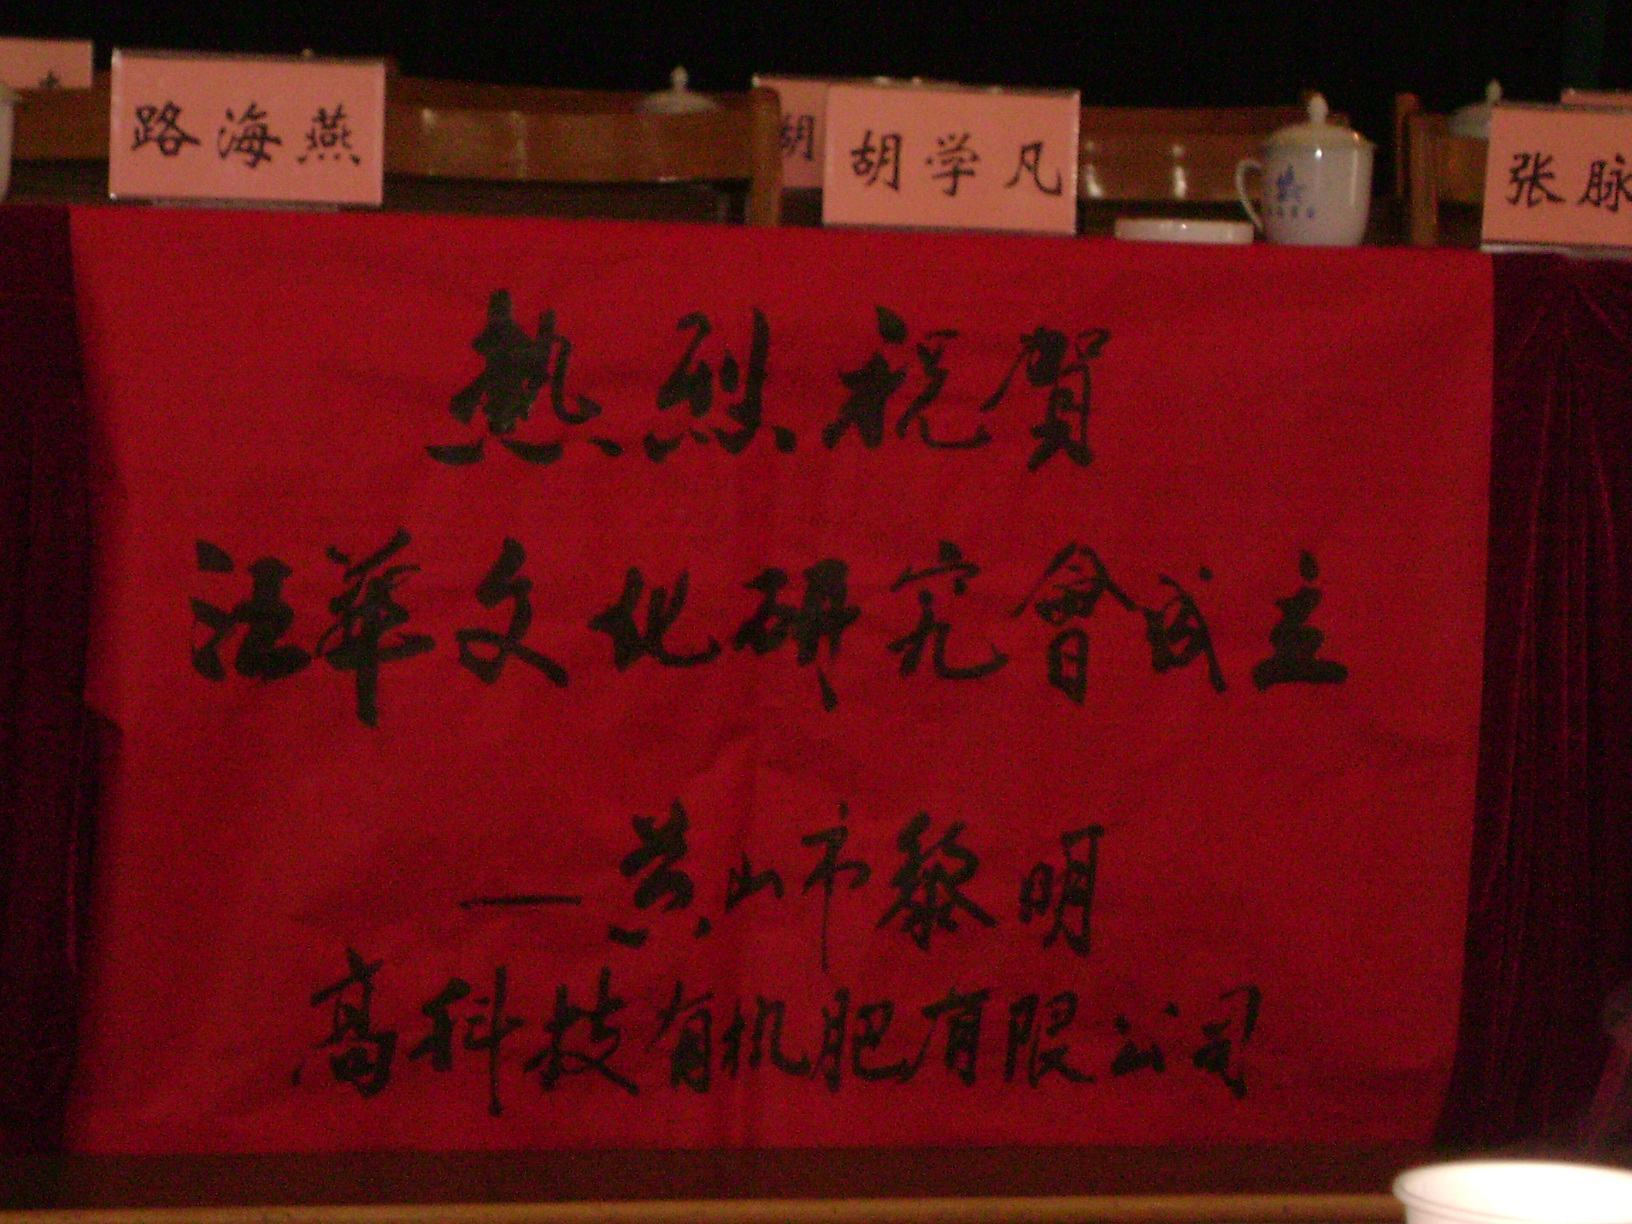 路海燕
胡
胡学凡
张脉
熱烈祝賀
汪華文化研究會成立
—黄山市黎明
高科技有机肥有限公司